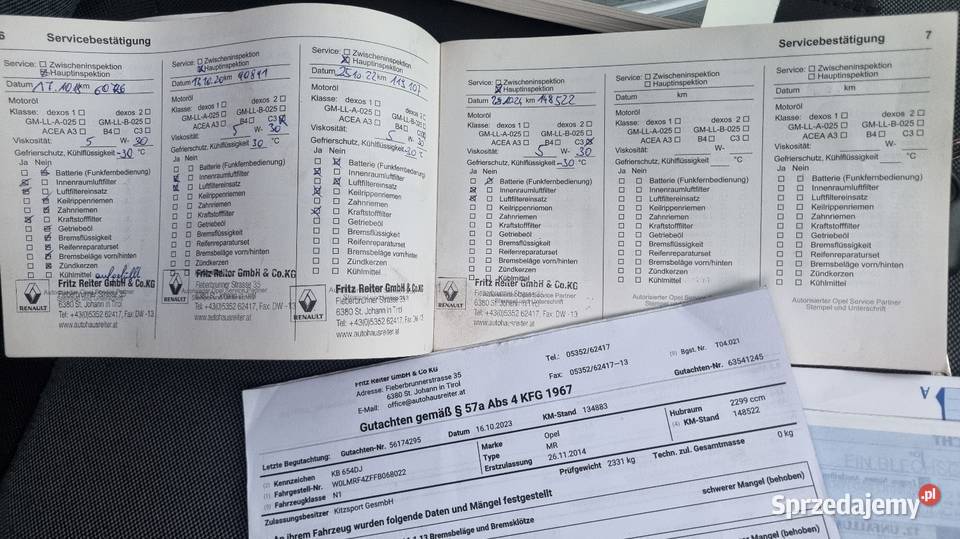 6 Servicebestätigung
Service: Zwischeninspektion
Hauptinspektion
Datum 17.10.18 km 60
Motoröl
Klasse: dexos 1 dexos 2
GM-LL-A-025 GM-LL-B-025
ACEA A3 B4 C3
Viskosität: 5 W- 30
Gefrierschutz, Kühlflüssigkeit -30 °C
Ja Nein
Batterie (Funkfernbedienung)
Innenraumluftfilter
Luftfiltereinsatz
Keilrippenriemen
Zahnriemen
Kraftstofffilter
Getriebeöl
Bremsflüssigkeit
Reifenreparaturset
Bremsbeläge vorn/hinten
Zündkerzen
Kühlmittel aufgefüllt
RENAULT
Fritz Reiter GmbH & Co.KG
Fieberbrunner Strasse 35
6380 St. Johann in Tirol
Tel: +43(0)5352 62417, Fax: DW -13
www.autohausreiter.at
Service: Zwischeninspektion
Hauptinspektion
Datum 12.10.20 km 90811
Motoröl
Klasse: dexos 1 dexos 2
GM-LL-A-025 GM-LL-B-025
ACEA A3 B4 C3
Viskosität: 5 W- 30
Gefrierschutz, Kühlflüssigkeit 30 °C
Ja Nein
Batterie (Funkfernbedienung)
Innenraumluftfilter
Luftfiltereinsatz
Keilrippenriemen
Zahnriemen
Kraftstofffilter
Getriebeöl
Bremsflüssigkeit
Reifenreparaturset
Bremsbeläge vorn/hinten
Zündkerzen
RENAULT
Fritz Reiter GmbH & Co.KG
Fieberbrunner Strasse 35
6380 St. Johann in Tirol
Tel: +43(0)5352 62417, Fax: DW -13
www.autohausreiter.at
Service: Zwischeninspektion
Hauptinspektion
Datum 25.10.22 km 119 107
Motoröl
Klasse: dexos 1 dexos 2
GM-LL-A-025 GM-LL-B-025
ACEA A3 B4 C3
Viskosität: 5 W- 30
Gefrierschutz, Kühlflüssigkeit °C
Ja Nein
Batterie (Funkfernbedienung)
Innenraumluftfilter
Luftfiltereinsatz
Keilrippenriemen
Zahnriemen
Kraftstofffilter
Getriebeöl
Bremsflüssigkeit
Reifenreparaturset
Bremsbeläge vorn/hinten
Zündkerzen
Kühlmittel
RENAULT
Fritz Reiter GmbH & Co.KG
Fieberbrunner Strasse 35
6380 St. Johann in Tirol
Tel: +43(0)5352 62417, Fax: DW -13
www.autohausreiter.at
Servicebestätigung 7
Service: Zwischeninspektion
Hauptinspektion
Datum 2024 km 148 522
Motoröl
Klasse: dexos 1 dexos 2
GM-LL-A-025 GM-LL-B-025
ACEA A3 B4 C3
Viskosität: 5 W- 30
Gefrierschutz, Kühlflüssigkeit -30 °C
Ja Nein
Batterie (Funkfernbedienung)
Innenraumluftfilter
Luftfiltereinsatz
Keilrippenriemen
Zahnriemen
Kraftstofffilter
Getriebeöl
Bremsflüssigkeit
Reifenreparaturset
Bremsbeläge vorn/hinten
Zündkerzen
Kühlmittel
RENAULT
Fritz Reiter GmbH & Co.KG
Fieberbrunner Strasse 35
6380 St. Johann in Tirol
Tel: +43(0)5352 62417, Fax: DW -13
www.autohausreiter.at
Service: Zwischeninspektion
Hauptinspektion
Datum km
Motoröl
Klasse: dexos 1 dexos 2
GM-LL-A-025 GM-LL-B-025
ACEA A3 B4 C3
Viskosität: W-
Gefrierschutz, Kühlflüssigkeit °C
Ja Nein
Batterie (Funkfernbedienung)
Innenraumluftfilter
Luftfiltereinsatz
Keilrippenriemen
Zahnriemen
Kraftstofffilter
Getriebeöl
Bremsflüssigkeit
Reifenreparaturset
Bremsbeläge vorn/hinten
Zündkerzen
Kühlmittel
Autorisierter Opel Service Partner
Stempel und Unterschrift
Service: Zwischeninspektion
Hauptinspektion
Datum km
Motoröl
Klasse: dexos 1 dexos 2
GM-LL-A-025 GM-LL-B-025
ACEA A3 B4 C3
Viskosität: W-
Gefrierschutz, Kühlflüssigkeit °C
Ja Nein
Batterie (Funkfernbedienung)
Innenraumluftfilter
Luftfiltereinsatz
Keilrippenriemen
Zahnriemen
Kraftstofffilter
Getriebeöl
Bremsflüssigkeit
Reifenreparaturset
Bremsbeläge vorn/hinten
Zündkerzen
Kühlmittel
Autorisierter Opel Service Partner
Stempel und Unterschrift
Fritz Reiter GmbH & Co KG
Adresse: Fieberbrunnerstrasse 35
6380 St. Johann in Tirol
E-Mail: office@autohausreiter.at
Tel.: 05352/62417
Fax: 05352/62417-13
(9) Bgst. Nr. T04.021
Gutachten-Nr. 63541245
Gutachten gemäß § 57a Abs 4 KFG 1967
Letzte Begutachtung: Gutachten-Nr. 56174295 Datum 16.10.2023 KM-Stand 134883
(2) Kennzeichen KB 654DJ Marke Opel Hubraum 2299 ccm
(1) Fahrgestell-Nr. W0LMRF4ZFFB068022 Type MR (4) KM-Stand 148522
(3) Fahrzeugklasse N1 Erstzulassung 26.11.2014
Zulassungsbesitzer Kitzsport GesmbH Prüfgewicht 2331 kg Techn. zul. Gesamtmasse 0 kg
An ihrem Fahrzeug wurden folgende Daten und Mängel festgestellt
schwerer Mangel (behoben)
1.13 Bremsbeläge und Bremsklötze
Mangel (behoben)
A
Sprzedajemy.pl